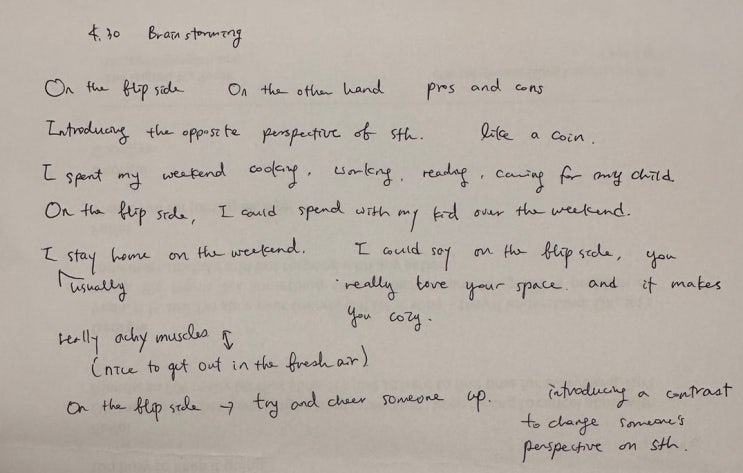 4.30 Brainstorming
On the flip side On the other hand pros and cons
Introducing the opposite perspective of sth. like a coin.
I spent my weekend cooking, working, reading, caring for my child
On the flip side, I could spend with my kid over the weekend.
I stay home on the weekend. I could say on the flip side, you
usually really love your space. and it makes
you cozy.
really achy muscles ↕
(nice to get out in the fresh air)
On the flip side → try and cheer someone up. introducing a contrast
to change someone's
perspective on sth.